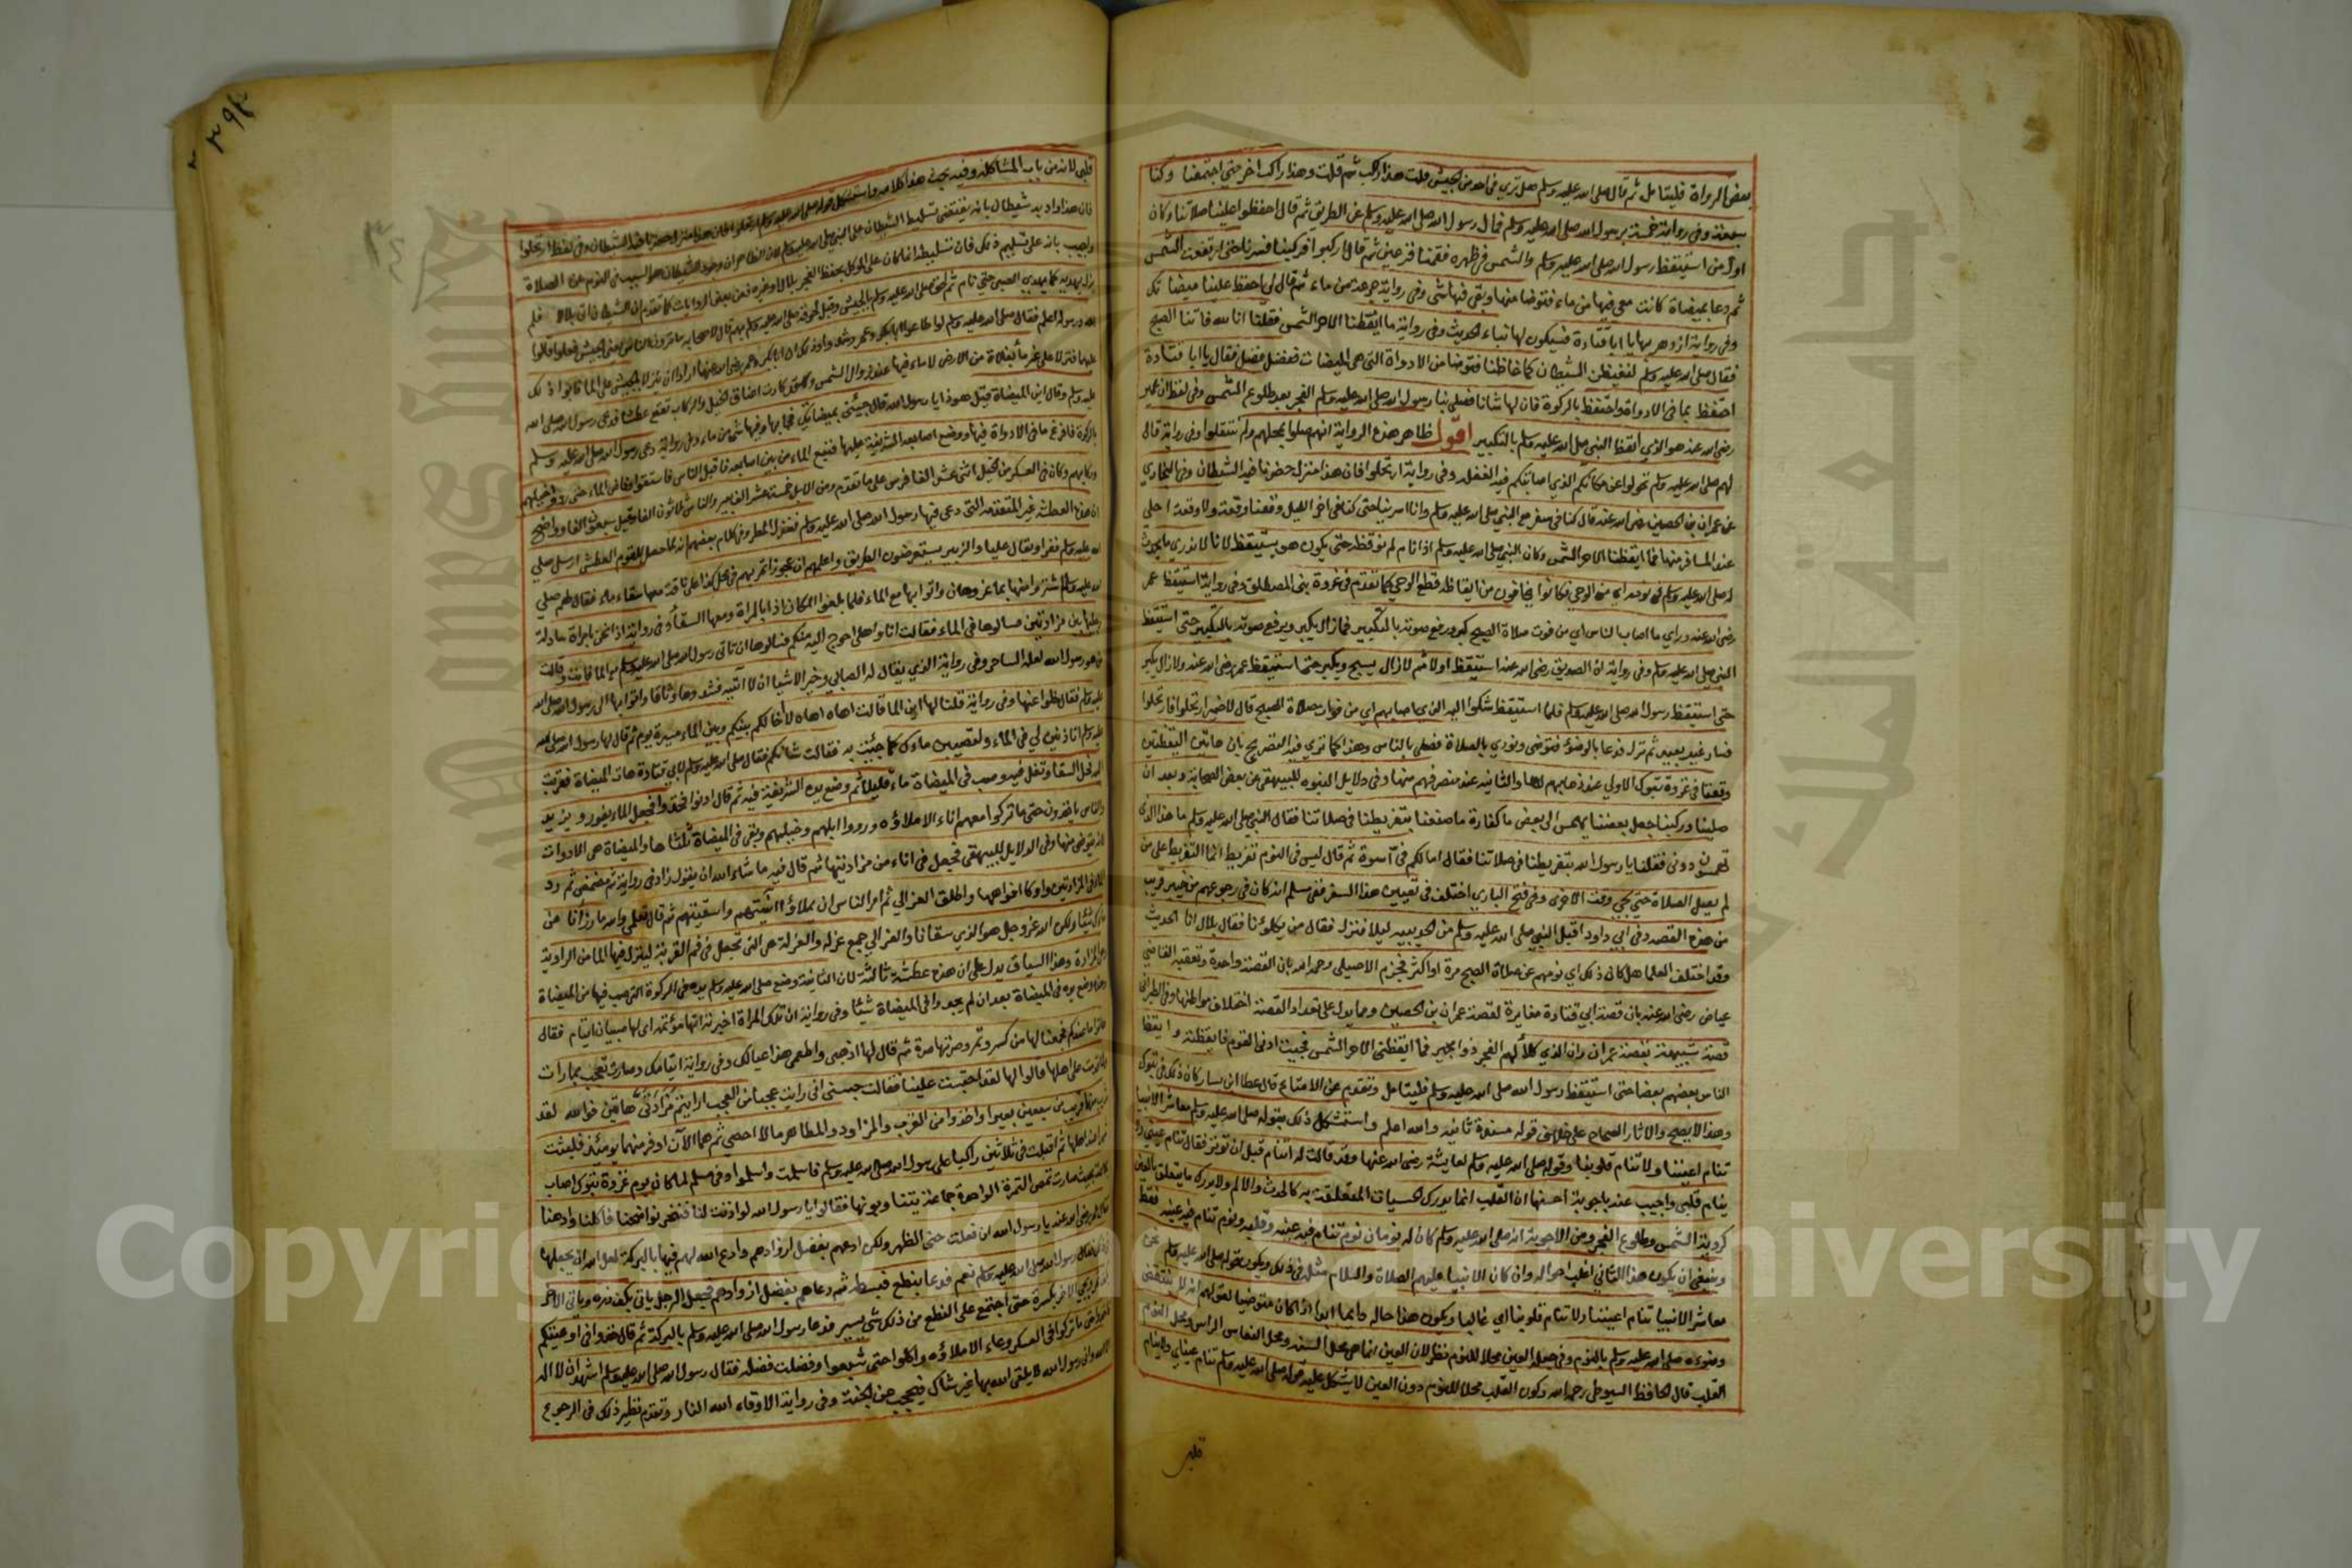 بعض الرواة فليتامل ثم قال صلى الله عليه وسلم هل ترى من احد من الجيش قلت هذا راكب ثم قلت وهذا راكب اخر حتى اجتمعنا وكنا
سبعة وفي رواية خمسة برسول الله صلى الله عليه وسلم فمال رسول الله صلى الله عليه وسلم عن الطريق ثم قال احفظوا علينا صلاتنا وكان
اول من استيقظ رسول الله صلى الله عليه وسلم والشمس في ظهره فقمنا فزعين ثم قال اركبوا فركبنا فسرنا حتى ارتفعت الشمس
ثم دعا بميضاة كانت معي فيها من ماء فتوضا منها وبقي فيها شي وفي رواية جرعة من ماء ثم قال لي احفظ علينا ميضاتك
وفي رواية ازدهر بها يا ابا قتادة فسيكون لها نباء الحديث وفي رواية ما ايقظنا الا حر الشمس فقلنا انا لله فاتنا الصبح
فقال صلى الله عليه وسلم لنغيظن الشيطان كما غاظنا فتوضا من الادواة التي هي الميضات ففضل فضل فقال يا ابا قتادة
احتفظ بما في الادواة واحتفظ بالركوة فان لها شانا فصلى بنا رسول الله صلى الله عليه وسلم الفجر بعد طلوع الشمس وفي لفظ ان عمر
رضي الله عنه هو الذي ايقظ النبي صلى الله عليه وسلم بالتكبير اقول ظاهر هذه الرواية انهم صلوا بمحلهم ولم ينتقلوا وفي رواية قال
لهم صلى الله عليه وسلم تحولوا عن مكانكم الذي اصابتكم فيه الغفلة وفي رواية ارتحلوا فان هذا منزل حضرنا فيه الشيطان وفي البخاري
عن عمران بن الحصين رضي الله عنه قال كنا في سفر مع النبي صلى الله عليه وسلم وانا اسرينا حتى كنا في اخر الليل وقعنا وقعة ولا وقعة احلى
عند المسافر منها فما ايقظنا الا حر الشمس وكان النبي صلى الله عليه وسلم اذا نام لم نوقظه حتى يكون هو يستيقظ لانا لا ندري ما يحدث
له صلى الله عليه وسلم في نومه اي من الوحي فكانوا يخافون من ايقاظه قطع الوحي كما تقدم في غزوة بني المصطلق وفي رواية استيقظ عمر
رضي الله عنه وراى ما اصاب الناس اي من فوت صلاة الصبح كبر ورفع صوته بالتكبير فما زال يكبر ويرفع صوته بالتكبير حتى استيقظ
النبي صلى الله عليه وسلم وفي رواية ان الصديق رضي الله عنه استيقظ اولا ثم لا زال يسبح ويكبر حتى استيقظ عمر رضي الله عنه ولا زال يكبر
حتى استيقظ رسول الله صلى الله عليه وسلم فلما استيقظ شكوا اليه الذي اصابهم اي من فوات صلاة الصبح قال لا ضير ارتحلوا فارتحلوا
فسار غير بعيد ثم نزل فدعا بالوضوء فتوضى ونودي بالصلاة فصلى بالناس وهذا كما ترى فيه التصريح بان هاتين اليقظتين
وقعتا في غزوة تبوك الاولى عند ذهابهم لها والثانية عند منصرفهم منها وفي دلايل النبوة للبيهقي عن بعض الصحابة وبعد ان
صلينا وركبنا جعل بعضنا يهمس الى بعض ما كفارة ما صنعنا بتفريطنا في صلاتنا فقال النبي صلى الله عليه وسلم ما هذا الذي
تهمسون دوني فقلنا يا رسول الله بتفريطنا في صلاتنا فقال اما لكم في اسوة ثم قال ليس في النوم تفريط انما التفريط على من
لم يصل الصلاة حتى يجي وقت الاخرى وفي فتح الباري اختلف في تعيين هذا السفر ففي مسلم انه كان في رجوعهم من خيبر قريب
من هذه القصة وفي ابي داود اقبل النبي صلى الله عليه وسلم من الحديبيه ليلا فنزل فقال من يكلؤنا فقال بلال انا الحديث
وقد اختلف العلما هل كان ذلك اي نومهم عن صلاة الصبح مرة او اكثر فجزم الاصيلي رحمه الله بان القصة واحدة وتعقبه القاضي
عياض رضي الله عنه بان قصة ابي قتادة مغايرة لقصة عمران بن الحصين ومما يدل على تعداد القصة اختلاف مواطنها وفي الطبراني
قصة شبيهة بقصة عمران وان الذي كلأ لهم الفجر ذو مخبر فما ايقظني الا حر الشمس فجيت ادنى القوم فايقظته وايقظ
الناس بعضهم بعضا حتى استيقظ رسول الله صلى الله عليه وسلم فليتامل وتقدم عن الامتاع قال عطا ابن يسار كان ذلك في تبوك
وهذا لا يصح والاثار الصحاح على خلاف قوله مسندة ثابتة والله اعلم واستشكل ذلك بقوله صلى الله عليه وسلم معاشر الانبيا
تنام اعيننا ولا تنام قلوبنا وقوله صلى الله عليه وسلم لعايشة رضي الله عنها وقد قالت له اتنام قبل ان توتر فقال تنام عيني ولا
ينام قلبي واجيب عنه باجوبة احسنها ان القلب انما يدرك الحسيات المتعلقة به كالحدث والالم ولا يدرك ما يتعلق بالعين
كروية الشمس وطلوع الفجر ومن الاجوبة انه صلى الله عليه وسلم كان له نومان نوم تنام فيه عينه وقلبه ونوم تنام فيه عينه فقط
وينبغي ان يكون هذا الثاني اغلب احواله وان كان الانبيا عليهم الصلاة والسلام مثله في ذلك ويكون قوله صلى الله عليه وسلم نحن
معاشر الانبيا تنام اعيننا ولا تنام قلوبنا اي غالبا ويكون هذا حاله دايما ابدا اذا كان متوضيا لقولهم انه لا ينتقض
وضوءه صلى الله عليه وسلم بالنوم وفي جعله العين محلا للنوم نظر لان العين انما هي محل السنة ومحل النعاس الراس ومحل النوم
القلب قال الحافظ السيوطي رحمه الله وكون القلب محلا للنوم دون العين لا يشكل عليه قوله صلى الله عليه وسلم تنام عيناي ولا ينام
قلبي
قلبي لانه من باب المشاكلة وفيه بحث هذا كلامه واستشكل قوله صلى الله عليه وسلم ارتحلوا فان هذا منزل حضرنا فيه الشيطان وفي لفظ ارتحلوا
فان هذا واد به شيطان بانه يقتضي تسليط الشيطان على النبي صلى الله عليه وسلم لان الظاهر ان وجود الشيطان هو السبب في النوم عن الصلاة
واجيب بانه على تسليم ذلك فان تسليطه انما كان على الموكل بحفظ الفجر بلال او غيره فعن بعض الروايات كما تقدم ان الشيطان اتى بلالا فلم
يزل يهديه كما يهدي الصبي حتى نام ثم لحق صلى الله عليه وسلم بالجيش وقبل لحوقه صلى الله عليه وسلم بهم قال لاصحابه ما ترون الناس يعني الجيش فعلوا قالوا
الله ورسوله اعلم فقال صلى الله عليه وسلم لو اطاعوا ابا بكر وعمر رشدوا وذلك ان ابا بكر وعمر رضي الله عنهما ارادا ان ينزلا بالجيش على الما فابوا ذلك
عليهما فنزلا على غير ما بفلاة من الارض لا ماء فيها عند زوال الشمس وكادت اعناق الخيل والركاب تقطع عطشا فدعى رسول الله صلى الله
عليه وسلم وقال اين الميضاة قيل هو ذا يا رسول الله قال جئني بميضاتك فجا بها وفيها شي من ماء وفي رواية دعى رسول الله صلى الله عليه وسلم
بالركوة فافرغ ما في الادواة فيها ووضع اصابعه الشريفة عليها فنبع الماء من بين اصابعه فاقبل الناس فاستقوا وفاض الماء حتى رووا خيلهم
وركابهم وكان في العسكر من الخيل اثنى عشر الف فرس على ما تقدم ومن الابل خمسة عشر الف بعير والناس ثلاثون الفا وقيل سبعون الفا وواضح
ان هذه العطشة غير المتقدمة التي دعى فيها رسول الله صلى الله عليه وسلم فنزل المطر وفي كلام بعضهم انه لما حصل للقوم العطش ارسل صلى
الله عليه وسلم نفرا ويقال عليا والزبير يستعرضون الطريق واعلمهم ان عجوزا تمر بهم في محل كذا على ناقة معها سقاء ماء فقال لهم صلى
الله عليه وسلم اشتروا منها بما عز وهان واتوا بها مع الماء فلما بلغوا المكان اذا بالمراة ومعها السقاء وفي رواية اذا نحن بامراة سادلة
رجليها بين مزادتين فسالوها في الماء فقالت انا واهلي احوج اليه منكم فسالوها ان تاتي رسول الله صلى الله عليه وسلم مع الما فابت وقالت
من هو رسول الله لعله الساحر وفي رواية الذي يقال له الصابي وخير الاشيا ان لا اتيه فشدوها وثاقا واتوا بها الى رسول الله صلى الله
عليه وسلم فقال خلوا عنها وفي رواية قلنا لها اين الما قالت اهاه اهاه لا ما لكم بينكم وبين الماء مسيرة يوم ثم قال لها رسول الله صلى الله
عليه وسلم اتاذنين لي في الماء ولتصيبين ماءك كما جئت به فقالت شانكم فقال صلى الله عليه وسلم لابي قتادة هات الميضاة فقربت
اليه فحل السقا وتفل فيه وصب في الميضاة ماء قليلا ثم وضع يده الشريفة فيه ثم قال ادنوا فخذوا فجعل الماء يفور ويزيد
والناس ياخذون حتى ما تركوا معهم اناء الا ملاؤه ورووا ابلهم وخيلهم وبقي في الميضاة ثلثاها والميضاة هي الادوات
التي يتوضى منها وفي الدلايل للبيهقي فجعل في اناء من مزادتيها ثم قال فيه ما شاء الله ان يقول زاد في رواية ثم مضمض ثم رد
الماء في المزادتين واوكا افواهها واطلق العزالي ثم امر الناس ان يملاؤا انيتهم واسقيتهم ثم قال تعلمي والله ما رزأنا من
مائك شيئا ولكن الله عز وجل هو الذي سقانا والعزالي جمع عزله والعزلة هي التي تجعل في فم القربة لينزل فيها الما من الراوية
وهي المزادة وهذا السياق يدل على ان هذه عطشة ثالثة لان الثانية وضع صلى الله عليه وسلم يده في الركوة التي صب فيها من الميضاة
وهنا وضع يده في الميضاة بعد ان لم يجدوا في الميضاة شيئا وفي رواية ان تلك المراة اخبرته انها مؤتمة اي لها صبيان ايتام فقال
هاتوا ما عندكم فجمعنا لها من كسر وتمر وصرلها صرة ثم قال لها اذهبي واطعمي هذا عيالك وفي رواية ايتامك وصارت تعجب مما رات
فلما قدمت على اهلها قالوا لها لقد احتبست علينا فقالت حبسني اني رايت عجبا من العجب ارايتم مزادتي هاتين فوالله لقد
شرب منهما قريب من سبعين بعيرا واخذوا من القرب والمزاود والمطاهر ما لا احصي ثم هما الآن اوفر منهما يومئذ فلبثت
عند اهلها ثم اقبلت في ثلاثين راكبا على رسول الله صلى الله عليه وسلم فاسلمت واسلموا وفي مسلم لما كان يوم غزوة تبوك اصاب
الناس مجاعة بحيث صارت تمص التمرة الواحدة جماعة يتناوبونها فقالوا يا رسول الله لو اذنت لنا فننحر نواضحنا فاكلنا وادهنا
فقال عمر رضي الله عنه يا رسول الله ان فعلت فني الظهر ولكن ادعهم بفضل ازوادهم وادع الله لهم فيها بالبركة لعل الله ان يجعلها
في ذلك فقال رسول الله صلى الله عليه وسلم نعم فدعا بنطع فبسطه ثم دعاهم بفضل ازوادهم فجعل الرجل ياتي بكف ذرة وياتي الاخر
بكف تمر ويجي الاخر بكسرة حتى اجتمع على النطع من ذلك شي يسير فدعا رسول الله صلى الله عليه وسلم بالبركة ثم قال خذوا في اوعيتكم
فاخذوا حتى ما تركوا في العسكر وعاء الا ملاؤه واكلوا حتى شبعوا وفضلت فضلة فقال رسول الله صلى الله عليه وسلم اشهد ان لا اله
الا الله واني رسول الله لا يلقى الله بها غير شاك فيحجب عن الجنة وفي رواية الا وقاه الله النار وتقدم نظير ذلك في الرجوع
Copyright © King Saud University
جامعة الملك سعود